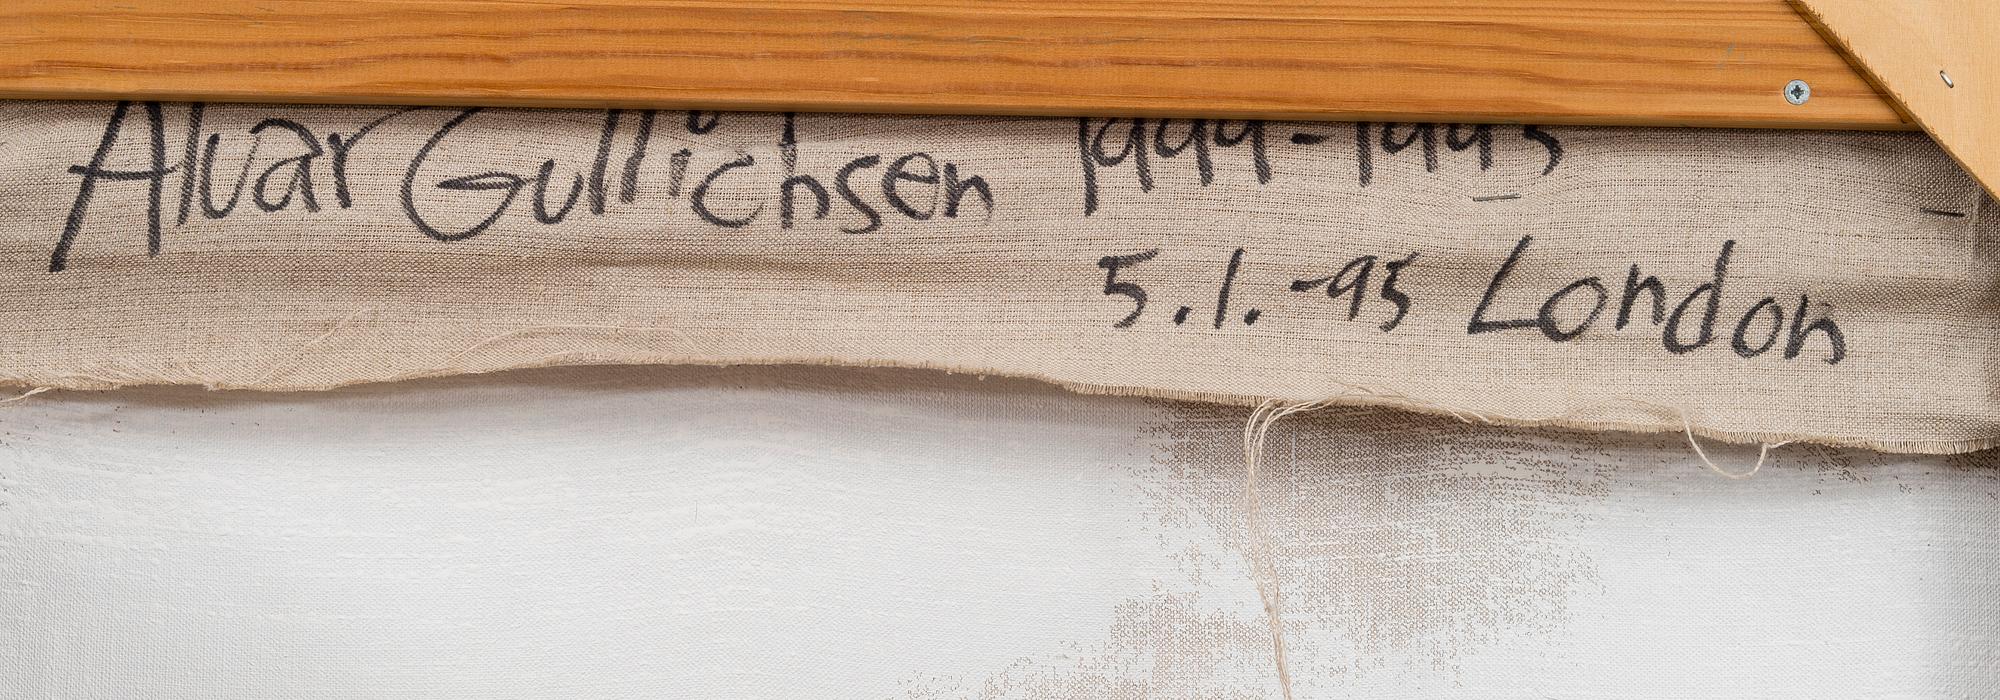 Alvar Gullichsen 1994-1995
5.1.-95 London